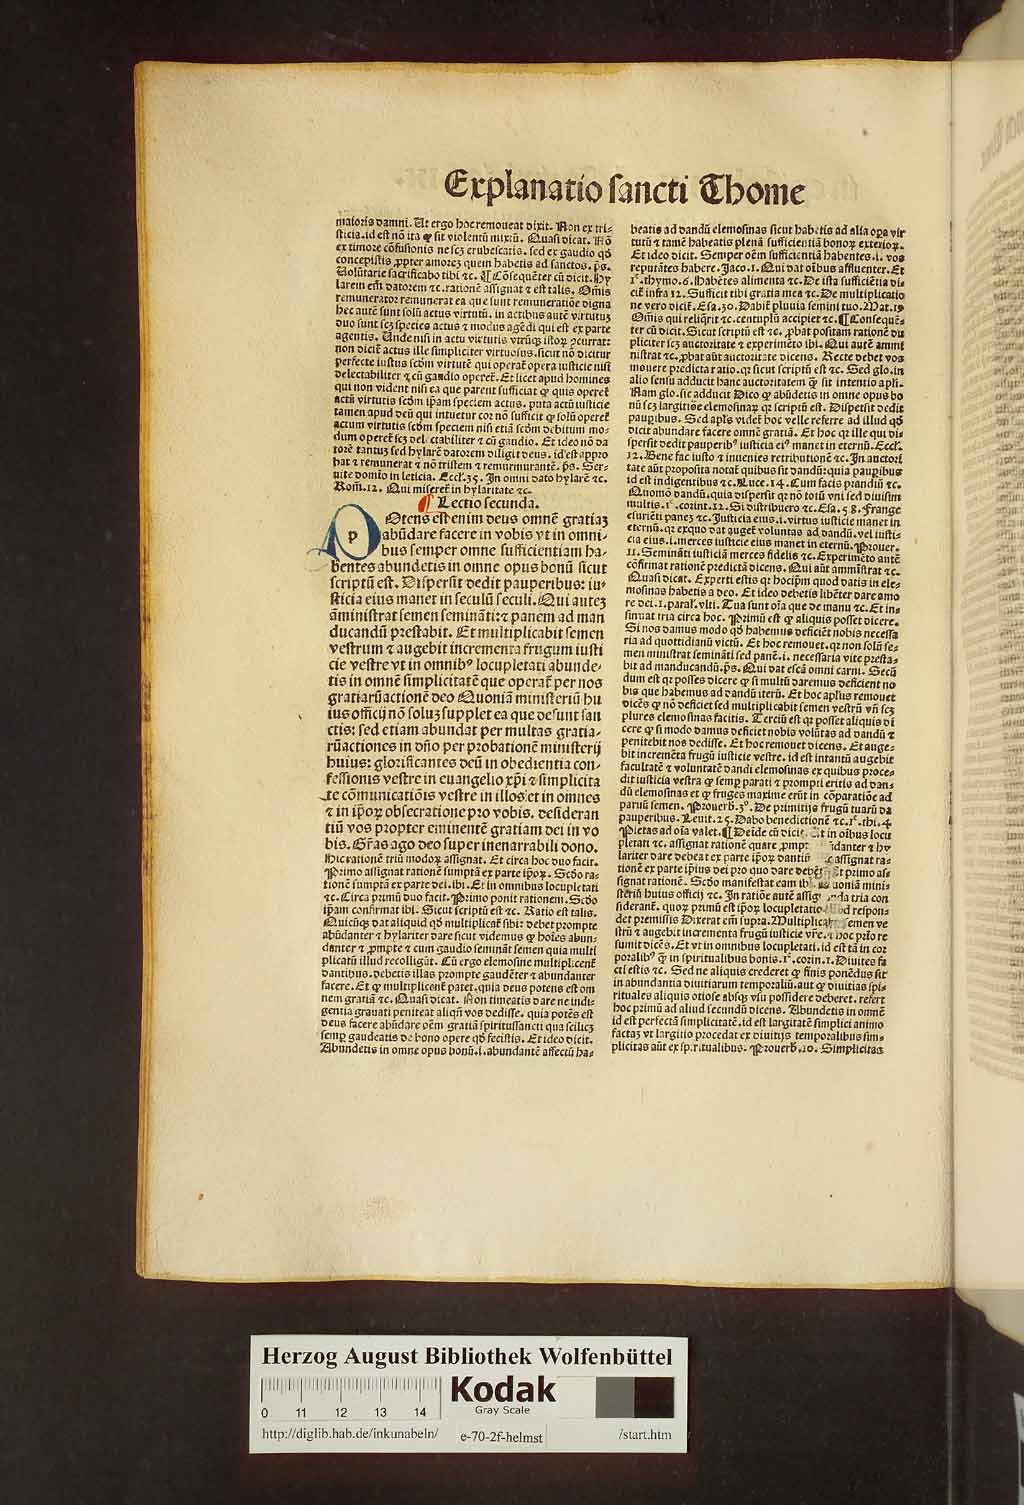 Explanatio sancti Thome
maioris damni. Ut ergo hoc remoueat dixit. Non ex tri-
sticia.id est nō ita ꝙ sit violentū mixtū. Quasi dicat. Nō
ex timore cōfusionis ne scʒ erubescatis. sed ex gaudio qd̄
concepistis ꝓpter amorē quem habetis ad sanctos. p̄s.
Voluntarie sacrificabo tibi ⁊c. ¶ Cōsequēter cū dicit. Hy
larem em̄ datorem ⁊c. rationē assignat ⁊ est talis. Om̄is
remunerator remunerat ea que sunt remuneratiōe digna
hec autē sunt solū actus virtutū. in actibus autē virtutū
duo sunt scʒ species actus ⁊ modus agēdi qui est ex parte
agentis. Unde nisi in actu virtutis vtrūqʒ istoꝝ ꝯcurrat:
non dicit̄ actus ille simpliciter virtuosus. sicut nō dicitur
perfecte iustus scd̄m virtutē qui operat̄ opera iusticie nisi
delectabiliter ⁊ cū gaudio operet̄. Et licet apud homines
qui non vident nisi ea que parent sufficiat ꝙ quis operet̄
actū virtutis scd̄m ip̄am speciem actus. puta actū iusticie
tamen apud deū qui intuetur cor nō sufficit ꝙ solū operet̄
actum virtutis scd̄m speciem nisi etiā scd̄m debitum mo-
dum operet̄ scʒ delectabiliter ⁊ cū gaudio. Et ideo nō da
torē tantuʒ sed hylarē datorem diligit deus. id est appro
bat ⁊ remunerat ⁊ nō tristem ⁊ remurmurantē. p̄s. Ser-
uite domīo in leticia. Eccl'.35. In omni dato hylarē ⁊c.
Rom̄.12. Qui miseret̄ in hylaritate ⁊c.
¶ Lectio secunda.
p Otens est enim deus omnē gratiaʒ
abūdare facere in vobis vt in omni-
bus semper omne sufficientiam ha-
bentes abundetis in omne opus bonū sicut
scriptū est. Dispersit dedit pauperibus: iu-
sticia eius manet in seculū seculi. Qui auteʒ
āministrat semen semināti: ⁊ panem ad man
ducandū prestabit. Et multiplicabit semen
vestrum ⁊ augebit incrementa frugum iusti
cie vestre vt in omnibꝰ locupletati abunde-
tis in omnē simplicitatē que operat̄ per nos
gratiarū actionē deo Quoniā ministeriū hu
ius officij nō soluʒ supplet ea que desunt san
ctis: sed etiam abundat per multas gratia-
rū actiones in dn̄o per probationē ministerij
huius: glorificantes deū in obedientia con-
fessionis vestre in euangelio xp̄i ⁊ simplicita
te cōmunicatiōis vestre in illos ⁊ in omnes
⁊ in ip̄oꝝ obsecratione pro vobis. desideran
tiū vos propter eminentē gratiam dei in vo
bis. Gr̄as ago deo super inenarrabili dono.
Hic rationē triū modoꝝ assignat. Et circa hoc duo facit.
Primo assignat rationē sumptā ex parte ip̄oꝝ. Scd̄o ra-
tionē sumptā ex parte dei. ibi. Et in omnibus locupletati
⁊c. Circa primū duo facit. Primo ponit rationem. Scd̄o
ip̄am confirmat ibi. Sicut scriptū est ⁊c. Ratio est talis.
Quicūqʒ dat aliquid qd̄ multiplicat̄ sibi: debet prompte
abūdanter ⁊ hylariter dare sicut videmus ꝙ hoīes abun-
danter ⁊ ꝓmpte ⁊ cum gaudio semināt semen quia multi
plicatū illud recolligūt. Cū ergo elemosine multiplicent̄
dantibus. debetis illas prompte gaudēter ⁊ abundanter
facere. Et ꝙ multiplicent̄ patet. quia deus potens est om
nem gratiā ⁊c. Quasi dicat. Non timeatis dare ne indi-
gentia grauati peniteat aliqn̄ vos dedisse. quia potēs est
deus facere abūdare oēm gratiā spiritussancti qua scilicʒ
semꝑ gaudeatis de bono opere qd̄ fecistis. Et ideo dicit.
Abundetis in omne opus bonū. i. abundantē affectū ha-
beatis ad dandū elemosinas sicut habetis ad alia opa vir
tutū ⁊ tamē habeatis plenā sufficientiā bonoꝝ exterioꝝ.
Et ideo dicit. Semper oēm sufficientiā habentes. i. vos
reputātes habere. Jaco.1. Qui dat oībus affluenter. Et
1ᵉ.thymo.6. Habētes alimenta ⁊c. De ista sufficiētia di-
cit̄ infra 12. Sufficit tibi gratia mea ⁊c. De multiplicatio
ne vero dicit̄. Esa.30. Dabit̄ pluuia semini tuo. Mat.19
Om̄is qui reliq̄rit ⁊c. centuplū accipiet ⁊c. ¶ Consequē-
ter cū dicit. Sicut scriptū est ⁊c. ꝓbat positam rationē du
pliciter scʒ auctoritate ⁊ experimēto ibi. Qui autē ammi
nistrat ⁊c. ꝓbat aūt auctoritate dicens. Recte debet vos
mouere predicta ratio. qꝛ sicut scriptū est ⁊c. Sed glo. in
alio sensu adducit hanc auctoritatem ꝙ̄ sit intentio apl'i.
Nam glo. sic adducit Dico ꝙ abūdetis in omne opus bo
nū scʒ largitiōe elemosinaꝝ qꝛ scriptū est. Dispersit dedit
pauꝑibus. Sed apl's videt̄ hoc velle referre ad illud qd̄
dicit abundare facere omnē gratiā. Et hoc qꝛ ille qui di-
spersit dedit pauperibꝰ iusticia eiꝰ manet in eternū. Eccl'.
12. Bene fac iusto ⁊ inuenies retributionē ⁊c. In auctori
tate aūt proposita notat̄ quibus sit dandū: quia pauꝑibus
id est indigentibus ⁊c. Luce.14. Cum facis prandiū ⁊c.
Quomō dandū. quia dispersit qꝛ nō totū vni sed diuisim
multis. 1ᵉ.corint.12. Si distribuero ⁊c. Esa.58. Frange
esuriēti paneʒ ⁊c. Justicia eius. i. virtus iusticie manet in
eternū. qꝛ exquo dat auget̄ voluntas ad dandū. vel iusti-
cia eius. i. merces iusticie eius manet in eternū. Prouer.
11. Seminātī iusticiā merces fidelis ⁊c. Experimēto autē
cōfirmat rationē predictā dicens. Qui aūt ammīstrat ⁊c.
Quasi dicat. Experti estis qꝛ hocip̄m quod datis in ele-
mosinas habetis a deo. Et ideo debetis libēter dare amo
re dei. 1.paral'.vlti. Tua sunt oīa que de manu ⁊c. Et in-
sinuat tria circa hoc. Primū est ꝙ aliquis posset dicere.
Si nos damus modo qd̄ habemus deficiēt nobis necessa
ria ad quottidianū victū. Et hoc remouet. qꝛ non solū se-
men ministrat seminātī sed panē. i. necessaria vite presta-
bit ad manducandū. p̄s. Qui dat escā omni carni. Secū
dum est qꝛ posses dicere ꝙ si multū daremus deficient no
bis que habemus ad dandū iterū. Et hoc apl'us remouet
dicēs ꝙ nō deficiet sed multiplicabit semen vestrū vn̄ scʒ
plures elemosinas facitis. Terciū est qꝛ posset aliquis di
cere ꝙ si modo damus deficiet nobis volūtas ad dandū ⁊
penitebit nos dedisse. Et hoc remouet dicens. Et auge-
bit incremēta frugū iusticie vestre. id est intantū augebit
facultatē ⁊ voluntatē dandi elemosinas ex quibus proce-
dit iusticia vestra ꝙ semꝑ parati ⁊ prompti eritis ad dan-
dū elemosinas et ꝙ fruges maxime erūt in cōparatiōe ad
paruū semen. Prouerb̄.3°. De primitijs frugū tuarū da
pauperibus. Leuit.25. Dabo benedictionē ⁊c. 1ᵉ.thi.4
Pietas ad oīa valet. ¶ Deīde cū dicit. Et in oībus locu
pletati ⁊c. assignat rationē quare ꝓmpte abūdanter ⁊ hy
lariter dare debeat ex parte ip̄oꝝ dantiū. Et assignat ra-
tionē ex parte ip̄ius dei pro quo dare debent. Et primo as-
signat rationē. Scd̄o manifestat eam ibi. Quoniā minis
steriū huius officij ⁊c. In ratiōe autē assignanda tria con
siderant̄. quoꝝ primū est ip̄oꝝ locupletatio. Quod respon-
det premissis Dixerat em̄ supra. Multiplicabit semen ve
strū ⁊ augebit incrementa frugū iusticie vr̄e. ⁊ hoc pro re
sumit dicēs. Et vt in omnibus locupletati. id est tā in cor
poralibꝰ ꝙ̄ in spiritualibus bonis. 1ᵉ.corin.1. Diuites fa
cti estis ⁊c. Sed ne aliquis crederet ꝙ finis ponēdus sit
in abundantia diuitiarum temporaliū. aut ꝙ diuitias spi-
rituales aliquis otiose absqʒ vsu possidere deberet. refert
hoc primū ad aliud secundū dicens. Abundetis in omnē
id est perfectā simplicitatē. id est largitatē simplici animo
factaʒ vt largitio procedat ex diuitijs temporalibus sim-
plicitas aūt ex spiritualibus. Prouerb̄.10. Simplicitas
Herzog August Bibliothek Wolfenbüttel
Kodak
Gray Scale
0 11 12 13 14
http://diglib.hab.de/inkunabeln/ e-70-2f-helmst /start.htm